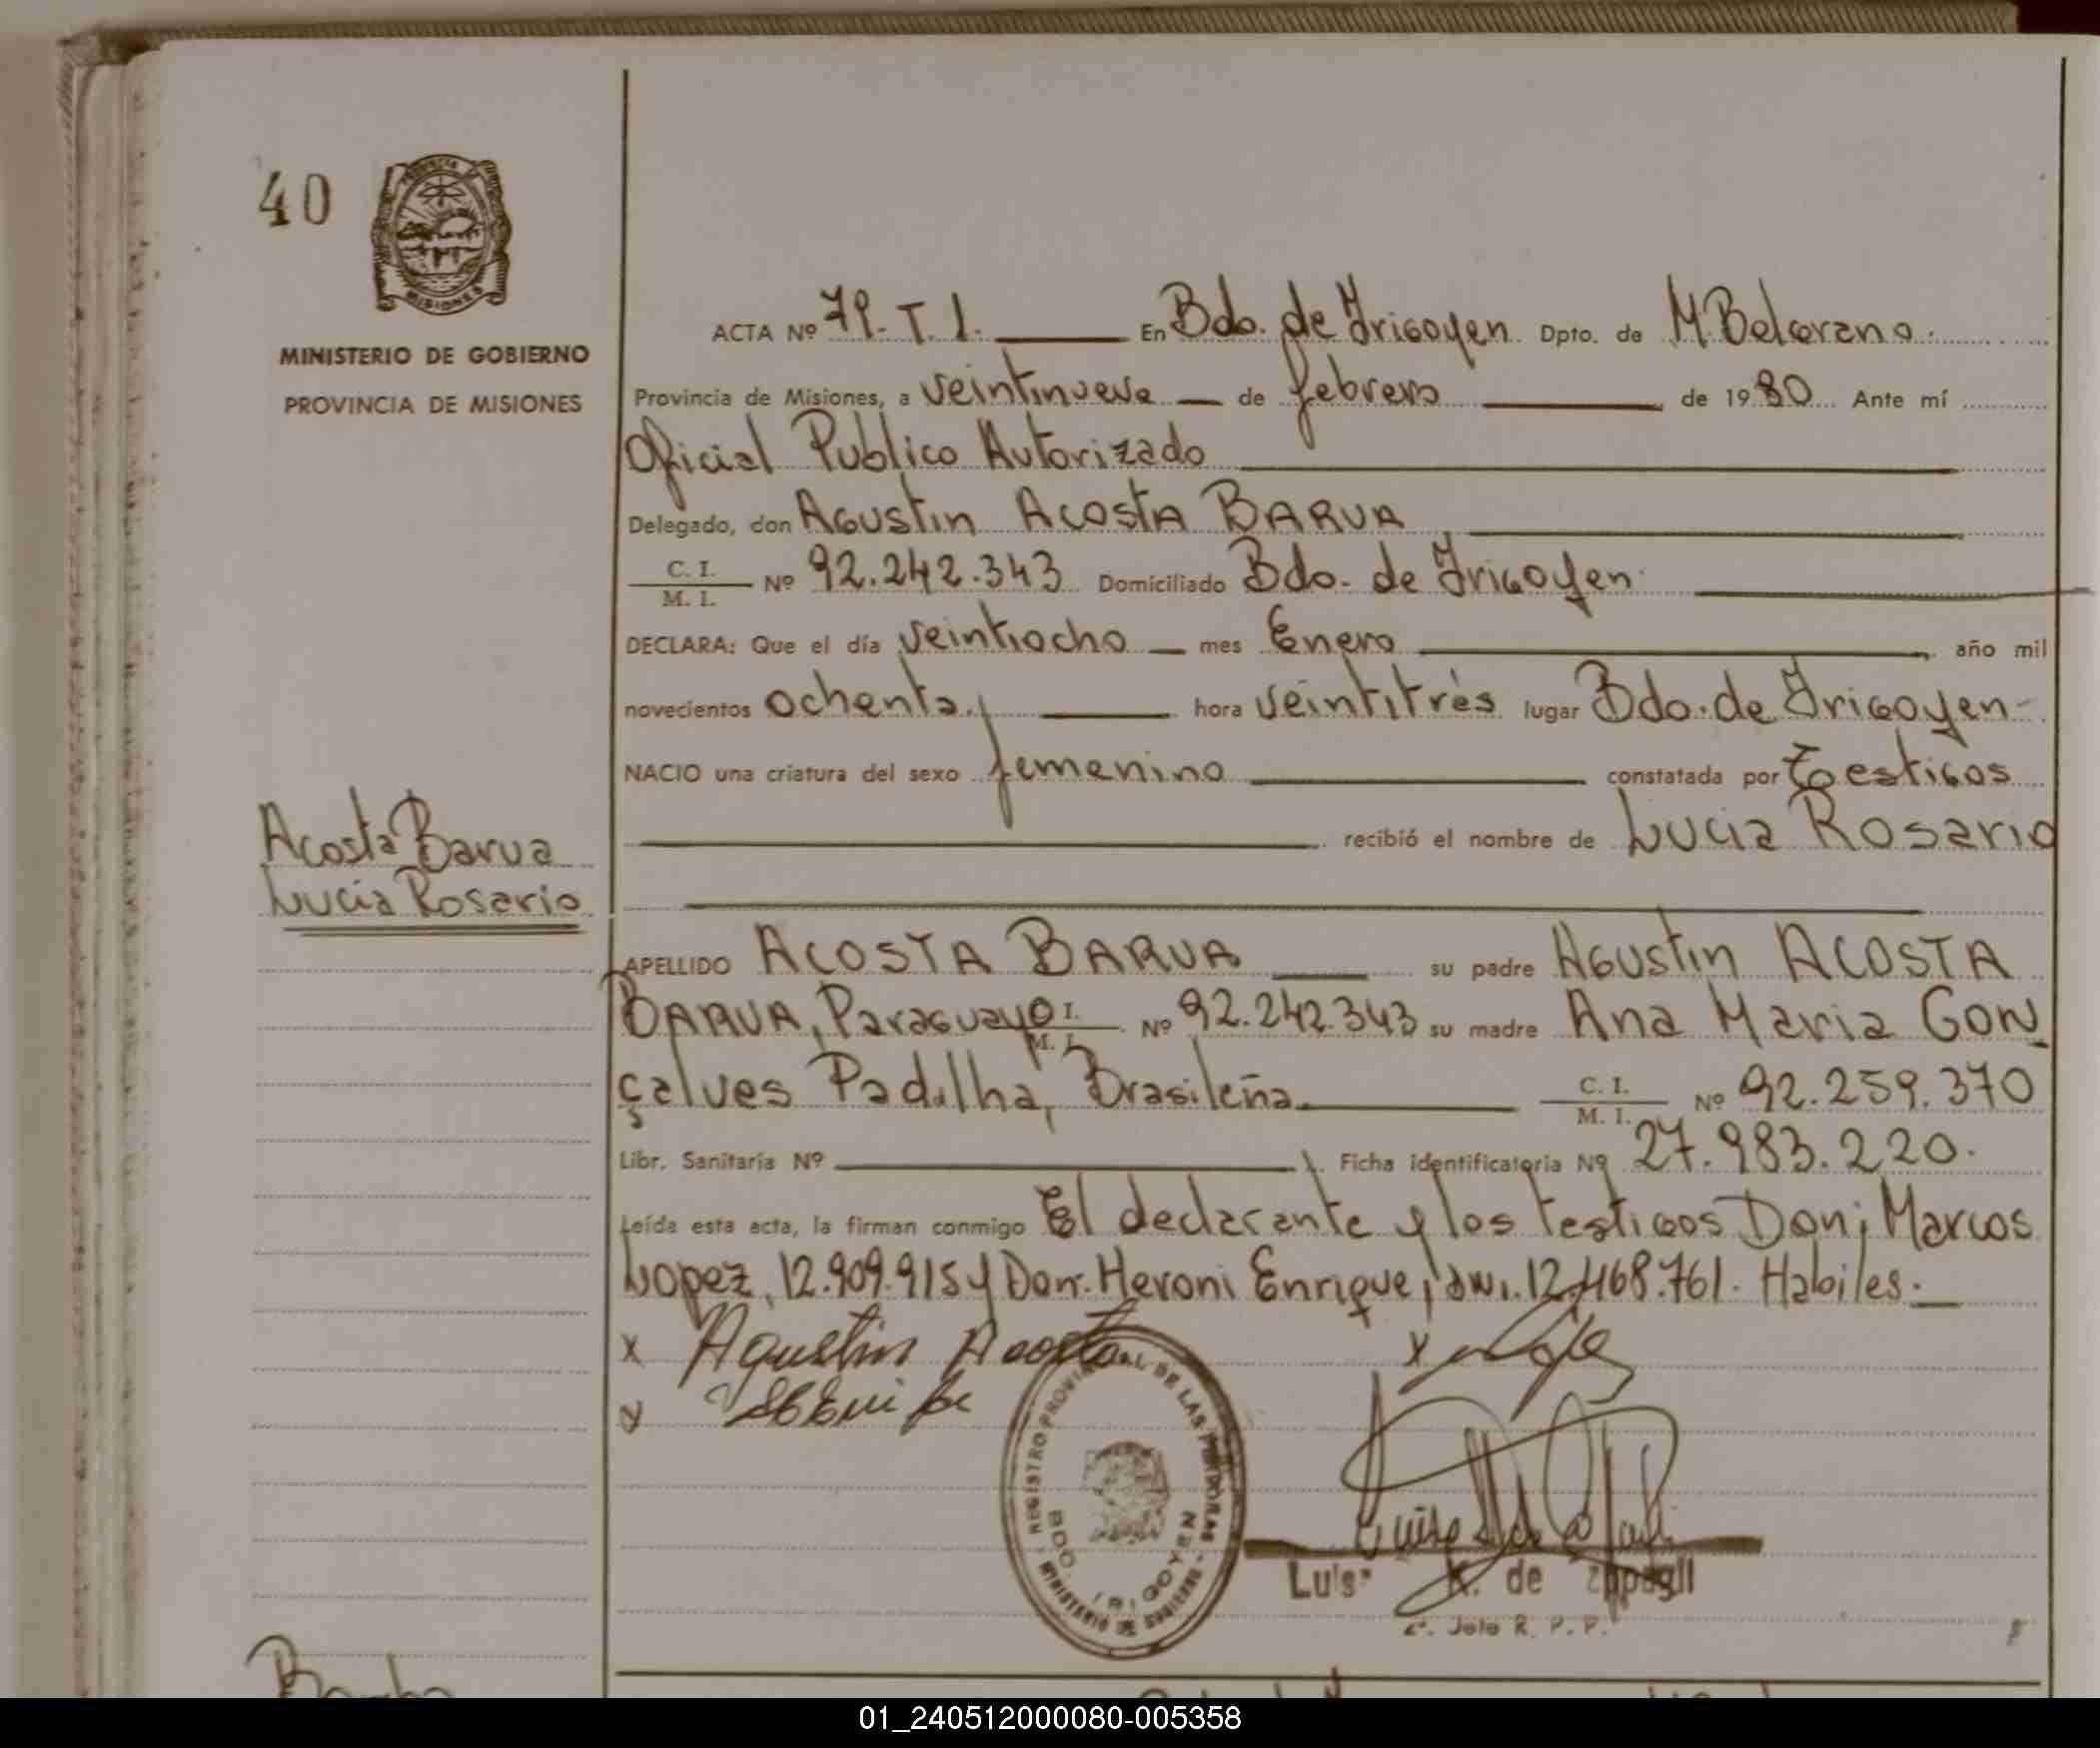 40
PROVINCIA
MISIONES
MINISTERIO DE GOBIERNO
PROVINCIA DE MISIONES
Acosta Barua
Lucia Rosario
ACTA Nº 79. T. I. En Bdo. de Irigoyen Dpto. de M. Belgrano.
Provincia de Misiones, a veintinueve de febrero de 1980 Ante mí
Oficial Publico Autorizado
Delegado, don Agustin Acosta BARUA
C. I.
M. I. Nº 92.242.343 Domiciliado Bdo. de Irigoyen
DECLARA: Que el día veintiocho mes Enero año mil
novecientos ochenta, hora veintitrès lugar Bdo. de Irigoyen
NACIO una criatura del sexo femenino constatada por testigos
recibió el nombre de Lucia Rosario
APELLIDO ACOSTA BARUA su padre Agustin ACOSTA
BARUA, Paraguayo M. I. Nº 92.242.343 su madre Ana Maria GON
çalves Padilha, Brasileña C. I.
M. I. Nº 92.259.370
Libr. Sanitaria Nº Ficha identificatoria Nº 27.983.220.
Leída esta acta, la firman conmigo El declarante y los testigos Don; Marcos
Lopez, 12.909.915 y Don. Heroni Enrique, dni. 12.468.761. Habiles.
x Agustin Acosta x
REGISTRO PROVINCIAL DE LAS PERSONAS
BDO. IRIGOYEN
MINISTERIO DE GOBIERNO
Luisa K. de
Jefe R. P. P.
01_240512000080-005358